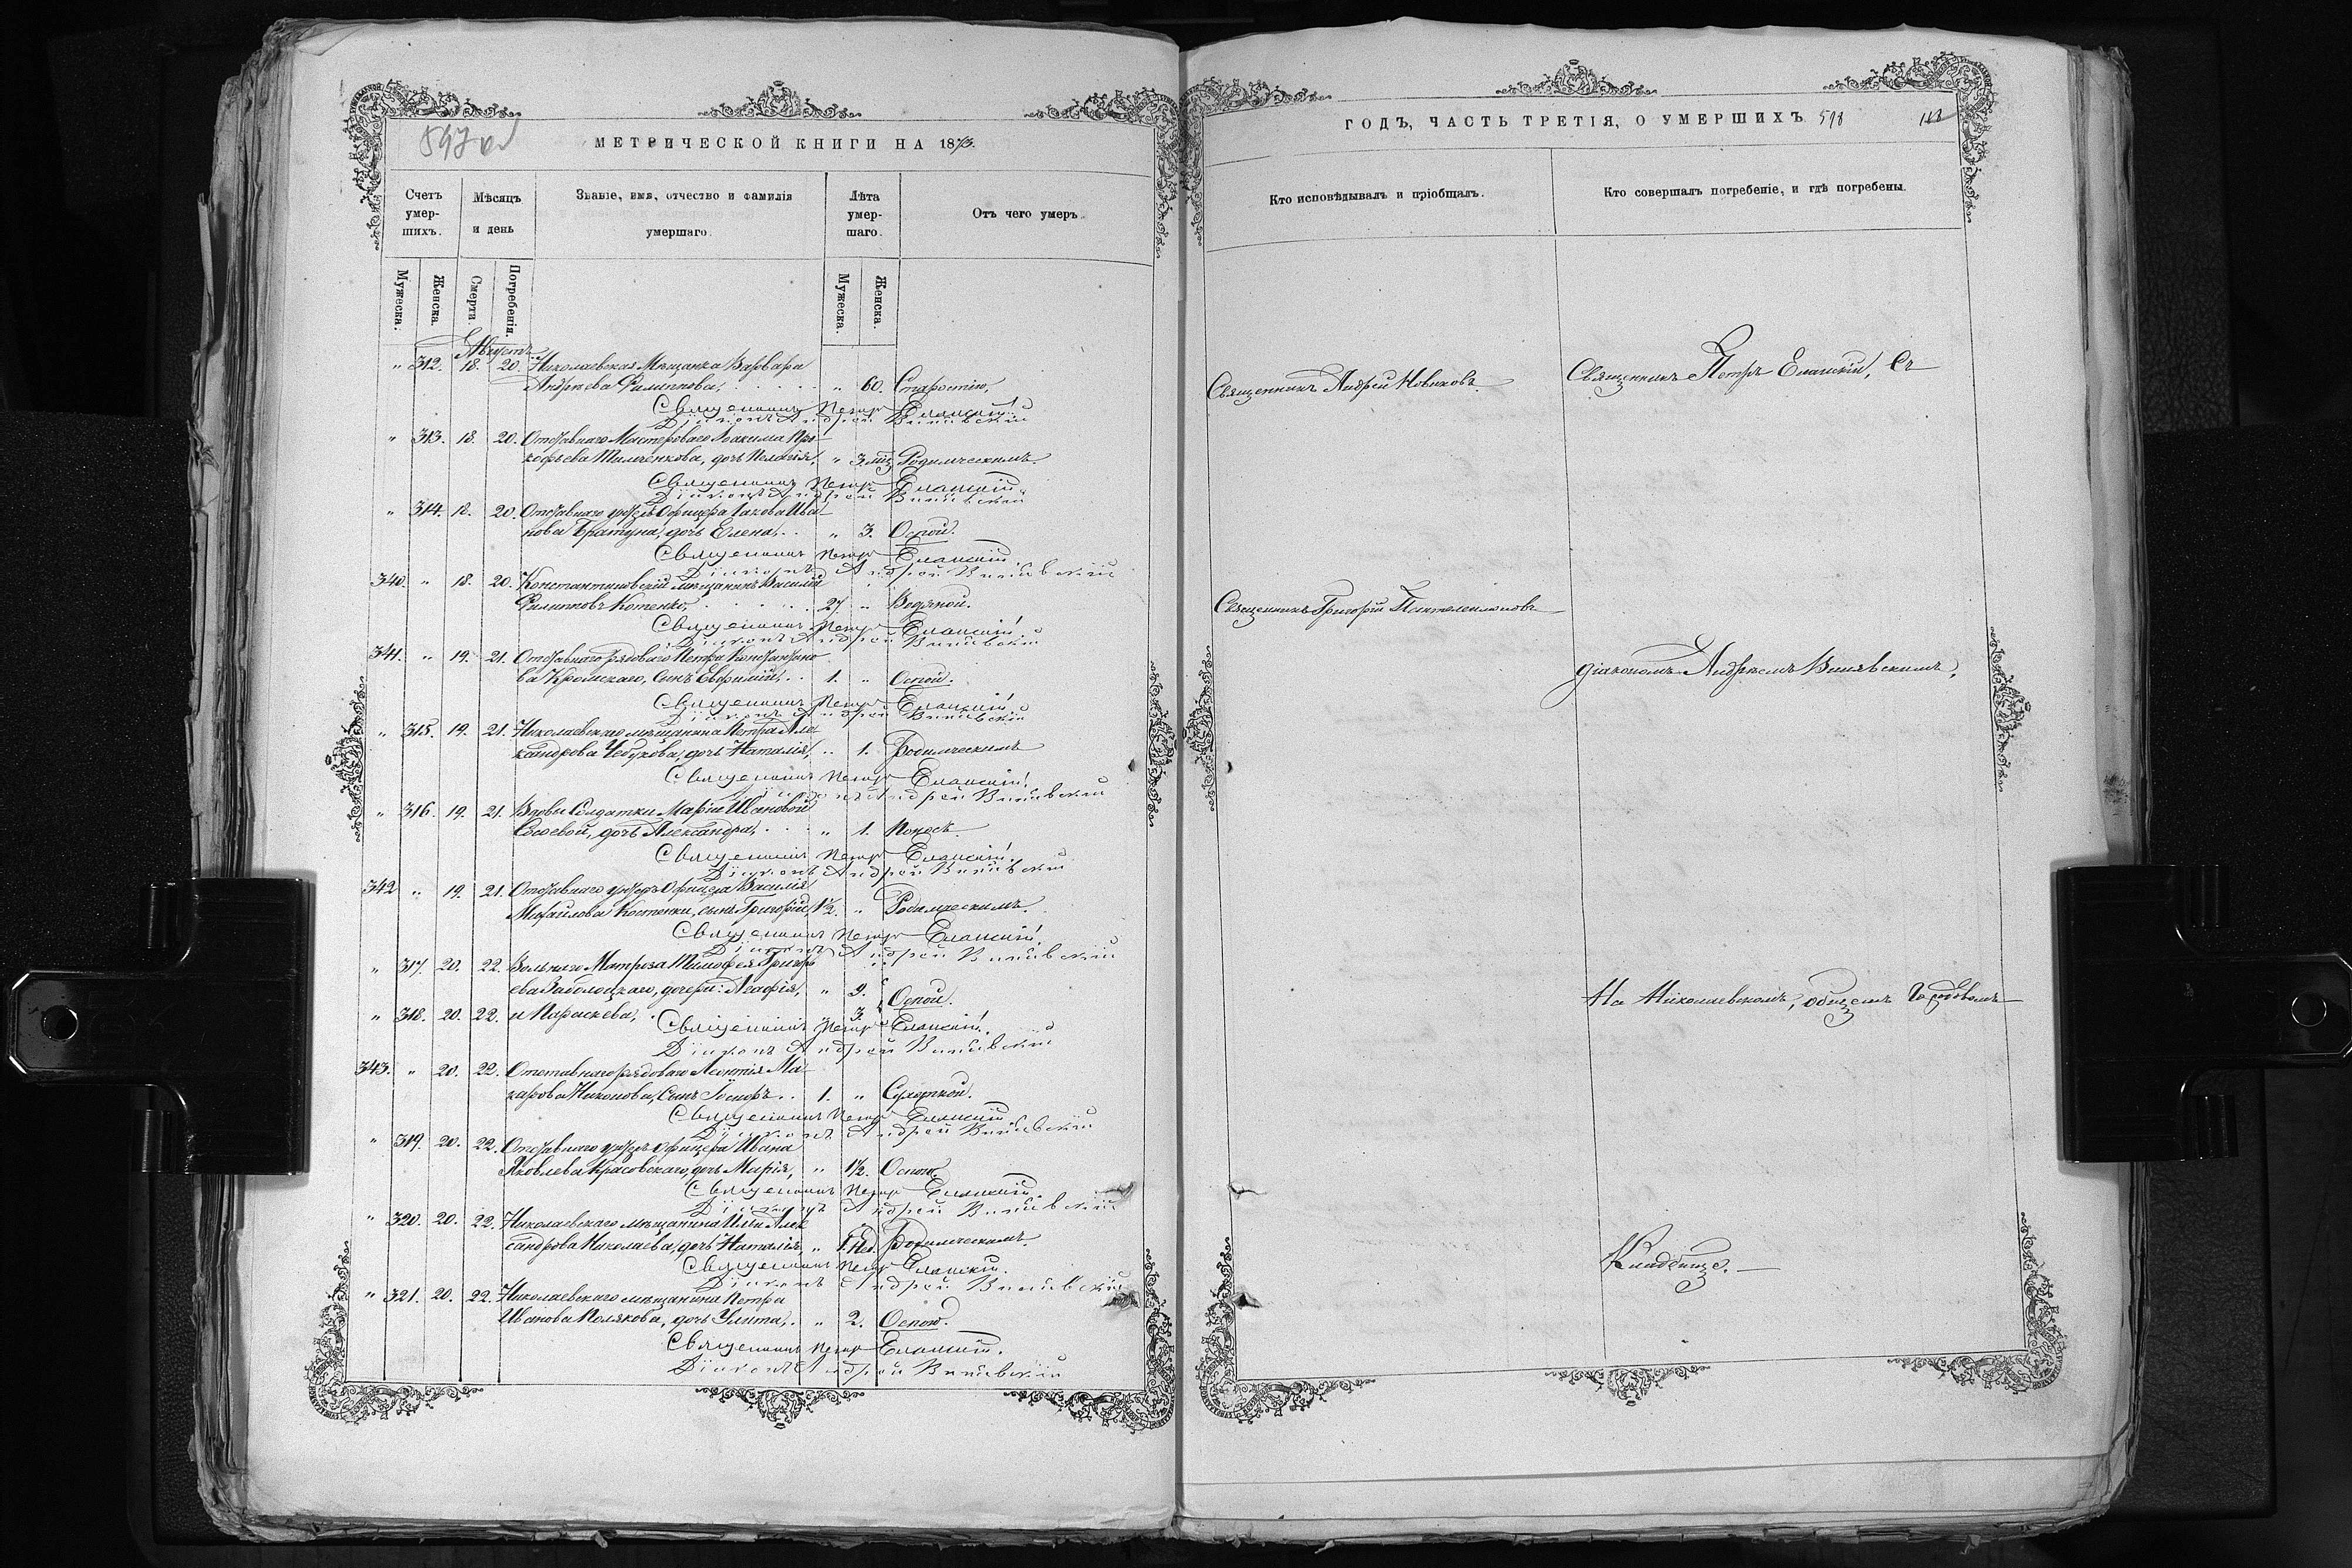 597 об
МЕТРИЧЕСКОЙ КНИГИ НА 1873.
Счетъ умер-шихъ.
Мѣсяцъ и день
Званіе, имя, отчество и фамилія умершаго.
Лѣта умер-шаго.
Отъ чего умеръ.
Мужеска. Женска. Смерти. Погребенія. Мужеска. Женска.
Августъ
" 312. 18. 20. Николаевская Мѣщанка Варвара
Андреева Филиппова, " 60. Старостію,
Священникъ Петръ Еланскій.
Діаконъ Андрей Виніевскій
" 313. 18. 20. Отставнаго Мастероваго Іоакима Про
кофьева Тимченкова, дочь Пелагія, " 3 мц. Родимческимъ.
Священникъ Петръ Еланскій.
Діаконъ Андрей Виніевскій
" 314. 18. 20. Отставнаго унтеръ Офицера Іакова Ива
нова Братуна, дочь Елена, " 3. Оспой.
Священникъ Петръ Еланскій.
Діаконъ Андрей Виніевскій
340. " 18. 20. Константиновскій мѣщанинъ Василій
Филипповъ Котенко, 27. " Водяной.
Священникъ Петръ Еланскій.
Діаконъ Андрей Виніевскій
341. " 19. 21. Отставнаго рядоваго Петра Константино
ва Кромскаго, сынъ Евфимій, 1. " Оспой.
Священникъ Петръ Еланскій.
Діаконъ Андрей Виніевскій
" 315. 19. 21. Николаевскаго мѣщанина Петра Але
ксандрова Чебукова, дочь Наталія, 1. Родимческимъ
Священникъ Петръ Еланскій.
Діаконъ Андрей Виніевскій
" 316. 19. 21. Вдовы Солдатки Маріи Ивановой
дочь Александра, " 1. Поносъ.
Священникъ Петръ Еланскій.
Діаконъ Андрей Виніевскій
342 " 19. 21. Отставнаго унтеръ Офицера Василія
Михайлова Костенки, сынъ Григорій, 1½. " Родимческимъ.
Священникъ Петръ Еланскій.
Діаконъ Андрей Виніевскій
" 317. 20. 22. Вольнаго Матроза Тимофея Григорь
ева Заболоцкаго, дочери: Агафія, " 9.
Оспой.
" 318. 20. 22. и Параскева, " 3.
Священникъ Петръ Еланскій.
Діаконъ Андрей Виніевскій
343. " 20. 22. Отставнаго рядоваго Леонтія Ма
карова Никонова, Сынъ 1. " Сухоткой.
Священникъ Петръ Еланскій
Діаконъ Андрей Виніевскій
" 319. 20. 22. Отставнаго унтеръ Офицера Ивана
Яковлева Красовскаго, дочь Марія, " 1½. Оспою.
Священникъ Петръ Еланскій.
Діаконъ Андрей Виніевскій
" 320. 20. 22. Николаевскаго мѣщанина Ильи Алек
сандрова Николаева, дочь Наталія, " 1. Нед. Родимческимъ.
Священникъ Петръ Еланскій.
Діаконъ Андрей Виніевскій
" 321. 20. 22. Николаевскаго мѣщанина Петра
Иванова Полякова, дочь Улита, " 2. Оспою.
Священникъ Петръ Еланскій.
Діаконъ Андрей Виніевскій
ГОДЪ, ЧАСТЬ ТРЕТІЯ, О УМЕРШИХЪ. 598
Кто исповѣдывалъ и пріобщалъ.
Кто совершалъ погребеніе, и гдѣ погребены.
Священникъ Андрей Новиковъ
Священникъ Петръ Еланскій, съ
Священникъ Григорій Пантелеимоновъ
діакономъ Андреемъ Виніевскимъ,
На Николаевскомъ, общемъ Городовомъ
Кладбище.